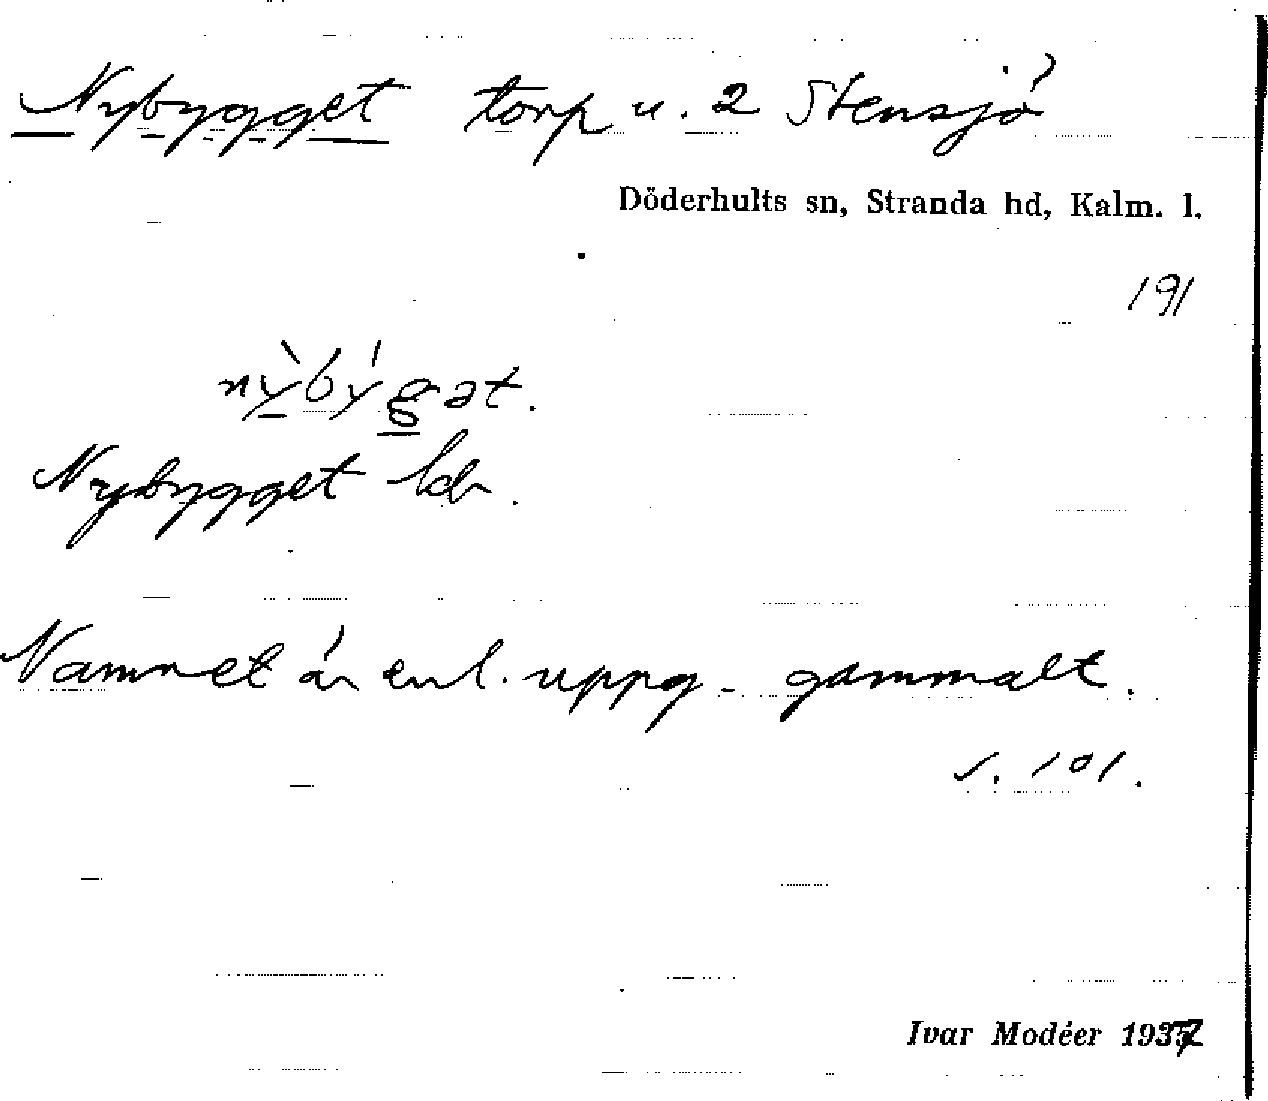 Nybygget torp u. 2 Stensjö
Döderhults sn, Stranda hd, Kalm. l.
191
nỳbýgət.
Nybygget
Namnet är enl. uppg. gammalt.
s. 101.
Ivar Modéer 1937